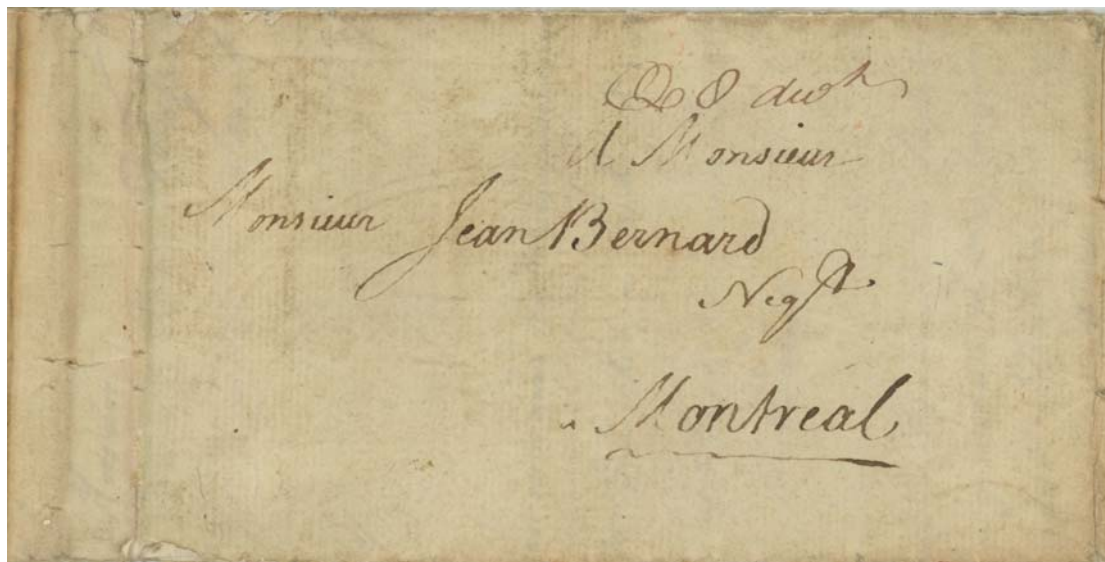 8 dwt
A Monsieur
Monsieur Jean Bernard
Negt
a Montreal